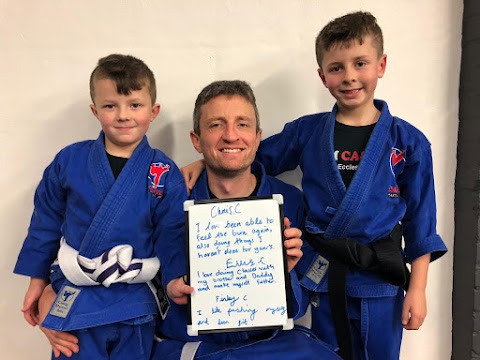 Chris C
I am being able to
feel the burn again,
also doing things I
havent done for years.
Ellis C
I love doing classes with
my brother and Daddy
and make myself better.
Finley C
I like pushing myself
and been fit
CA
Eccles